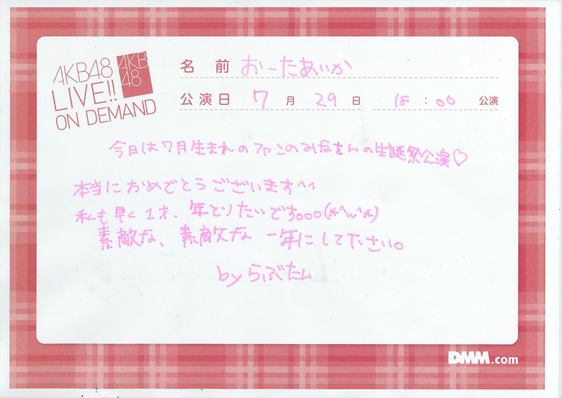 AKB48
LIVE!!
ON DEMAND
AKB
48
名前 おーたあいか
公演日 7月29日 18:00 公演
今日は7月生まれのファンのみなさんの生誕祭公演♡
本当におめでとうございます^^
私も早く1才、年とりたいですooo(*^w^*)
素敵な、素敵な一年にして下さい。
by らぶたん
DMM.com